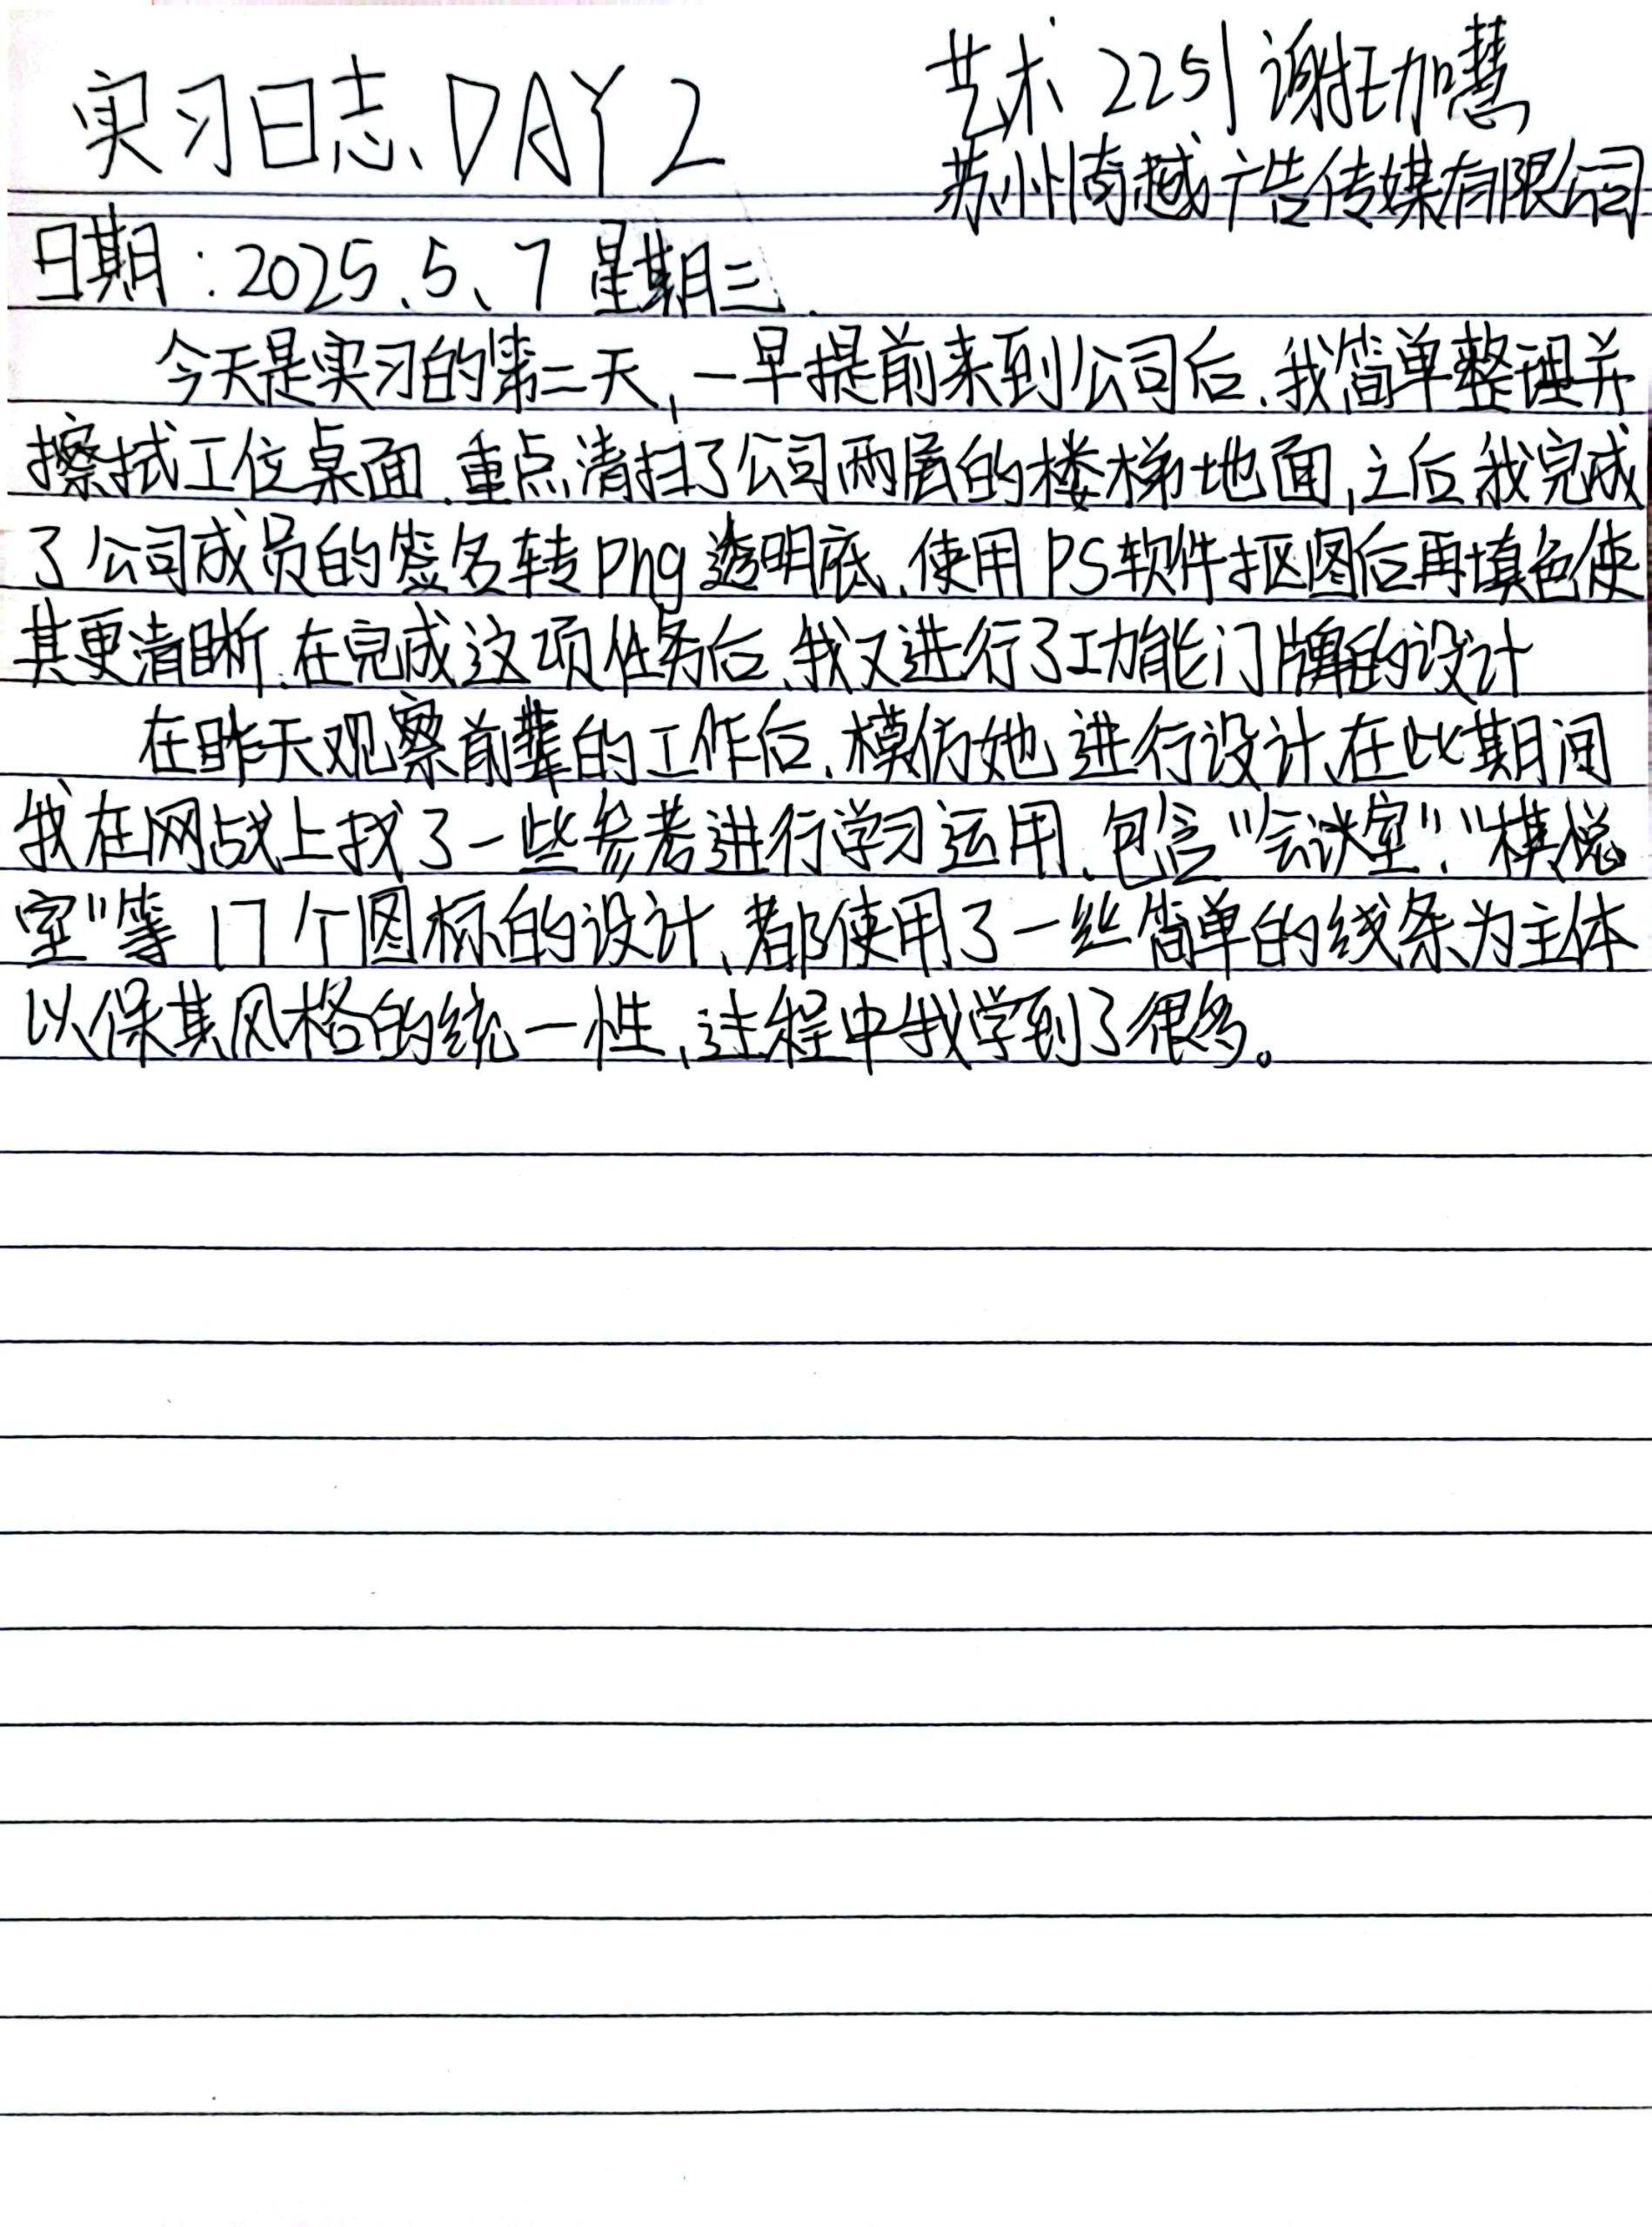 实习日志、DAY 2
艺术 2251 谢珈慧
苏州南越广告传媒有限公司
日期:2025、5、7 星期三、
今天是实习的第二天,一早提前来到公司后、我简单整理并
擦拭工位桌面、重点清扫了公司两层的楼梯地面,之后我完成
了公司成员的签名转png透明底、使用PS软件抠图后再填色使
其更清晰、在完成这项任务后、我又进行了功能门牌的设计
在昨天观察前辈的工作后、模仿她进行设计、在此期间
我在网战上找了一些参考进行学习运用、包含“会谈室”、“棋悦
室”等 17 个图标的设计、都使用了一丝简单的线条为主体
以保其风格的统一性、过程中我学到了很多。